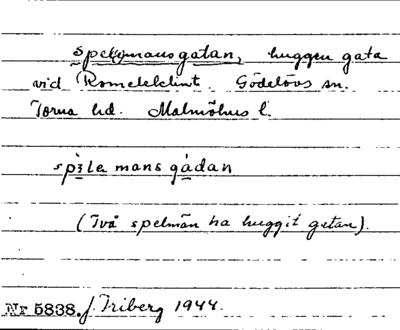 spel(e)mansgatan, huggen gata
vid Romeleklint. Gödelövs sn.
Torna hd. Malmöhus l.
spɜ̀lemans gȧdan
(Två spelmän ha huggit gatan).
Nr 5838. J. Friberg 1944.